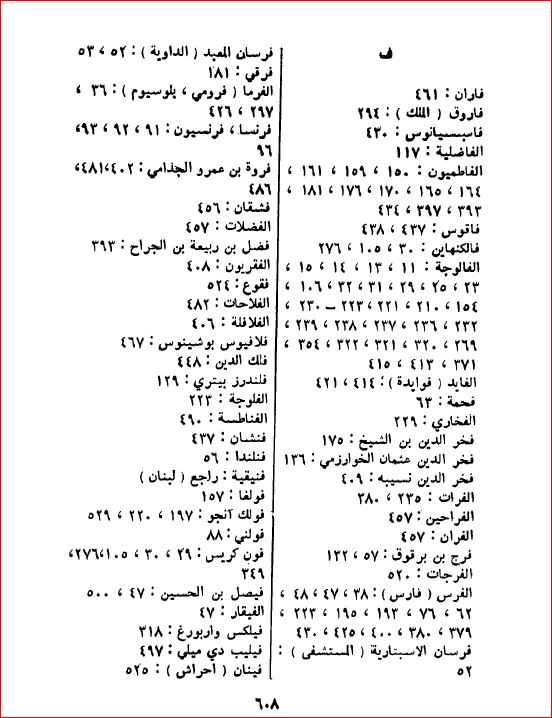 ف
فاران : ٤٦١
فاروق ( الملك ) : ٢٩٤
فاسبسيانوس : ٤٣٠
الفاضلية : ١١٧
الفاطميون : ١٥٠ ، ١٥٩ ، ١٦١ ،
١٦٤ ، ١٦٥ ، ١٧٠ ، ١٧٦ ، ١٨١ ،
٣٩٣ ، ٣٩٧ ، ٤٣٤
فاقوس : ٤٣٧ ، ٤٣٨
فالكنهاين : ٣٠ ، ١٠٥ ، ٢٧٦
الفالوجة : ١١ ، ١٣ ، ١٤ ، ١٥ ،
٢٣ ، ٢٥ ، ٢٩ ، ٣١ ، ٣٢ ، ١٠٦ ،
١٥٤ ، ٢١٠ ، ٢٢١ ، ٢٢٣ – ٢٣٠ ،
٢٣٢ ، ٢٣٦ ، ٢٣٧ ، ٢٣٨ ، ٢٣٩ ،
٢٦٩ ، ٣٢٠ ، ٣٢١ ، ٣٢٢ ، ٣٥٤ ،
٣٧١ ، ٤١٣ ، ٤١٥
الفايد ( فوايدة ) : ٤١٤ ، ٤٢١
فحمة : ٦٣
الفخاري : ٢٢٩
فخر الدين بن الشيخ : ١٧٥
فخر الدين عثمان الخوارزمي : ١٣٦
فخر الدين نسيبه : ٤٠٩
الفرات : ٢٣٥ ، ٣٨٠
الفراحين : ٤٥٧
الفران : ٤٥٧
فرج بن برقوق : ٥٧ ، ١٣٢
الفرجات : ٥٢٠
الفرس ( فارس ) : ٣٨ ، ٤٧ ، ٤٨ ،
٦٢ ، ٧٦ ، ١٩٣ ، ١٩٥ ، ٢٢٣ ،
٣٧٩ ، ٣٨٠ ، ٤٠٠ ، ٤٢٥ ، ٤٣٠
فرسان الاسبتارية ( المستشفى ) :
٥٢
فرسان المعبد ( الداوية ) : ٥٢ ، ٥٣
فرقي : ١٨١
الفرما ( فرومي ، بلوسيوم ) : ٣٦ ،
٢٩٧ ، ٤٢٦
فرنسا ، فرنسيون : ٩١ ، ٩٢ ، ٩٣ ،
٩٦
فروة بن عمرو الجذامي : ٤٠٢ ، ٤٨١ ،
٤٨٦
فشقان : ٤٥٦
الفضلات : ٤٥٧
فضل بن ربيعة بن الجراح : ٣٩٣
الفقريون : ٤٠٨
فقوع : ٥٢٤
الفلاحات : ٤٨٢
الفلافلة : ٤٠٦
فلافيوس بوشينوس : ٤٦٧
فلك الدين : ٤٤٨
فلندرز بيتري : ١٢٩
الفلوجة : ٢٢٣
الفناطسة : ٤٩٠
فنشان : ٤٣٧
فنلندا : ٥٦
فنيقية : راجع ( لبنان )
فولغا : ١٥٧
فولك آنجو : ١٩٧ ، ٢٢٠ ، ٥٢٩
فولني : ٨٨
فون كريس : ٢٩ ، ٣٠ ، ١٠٥ ، ٢٧٦ ،
٣٤٩
فيصل بن الحسين : ٤٧ ، ٥٠٠
الفيقار : ٤٧
فيلكس واربورغ : ٣١٨
فيليب دي ميلي : ٤٩٧
فينان ( احراش ) : ٥٢٥
٦٠٨